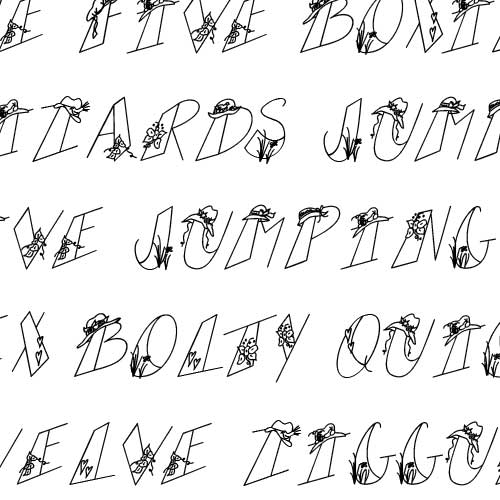 E FIVE BOXI
IZARDS JUMP
IVE JUMPING
EX BOLTY QUIC
WELVE ZIGGU